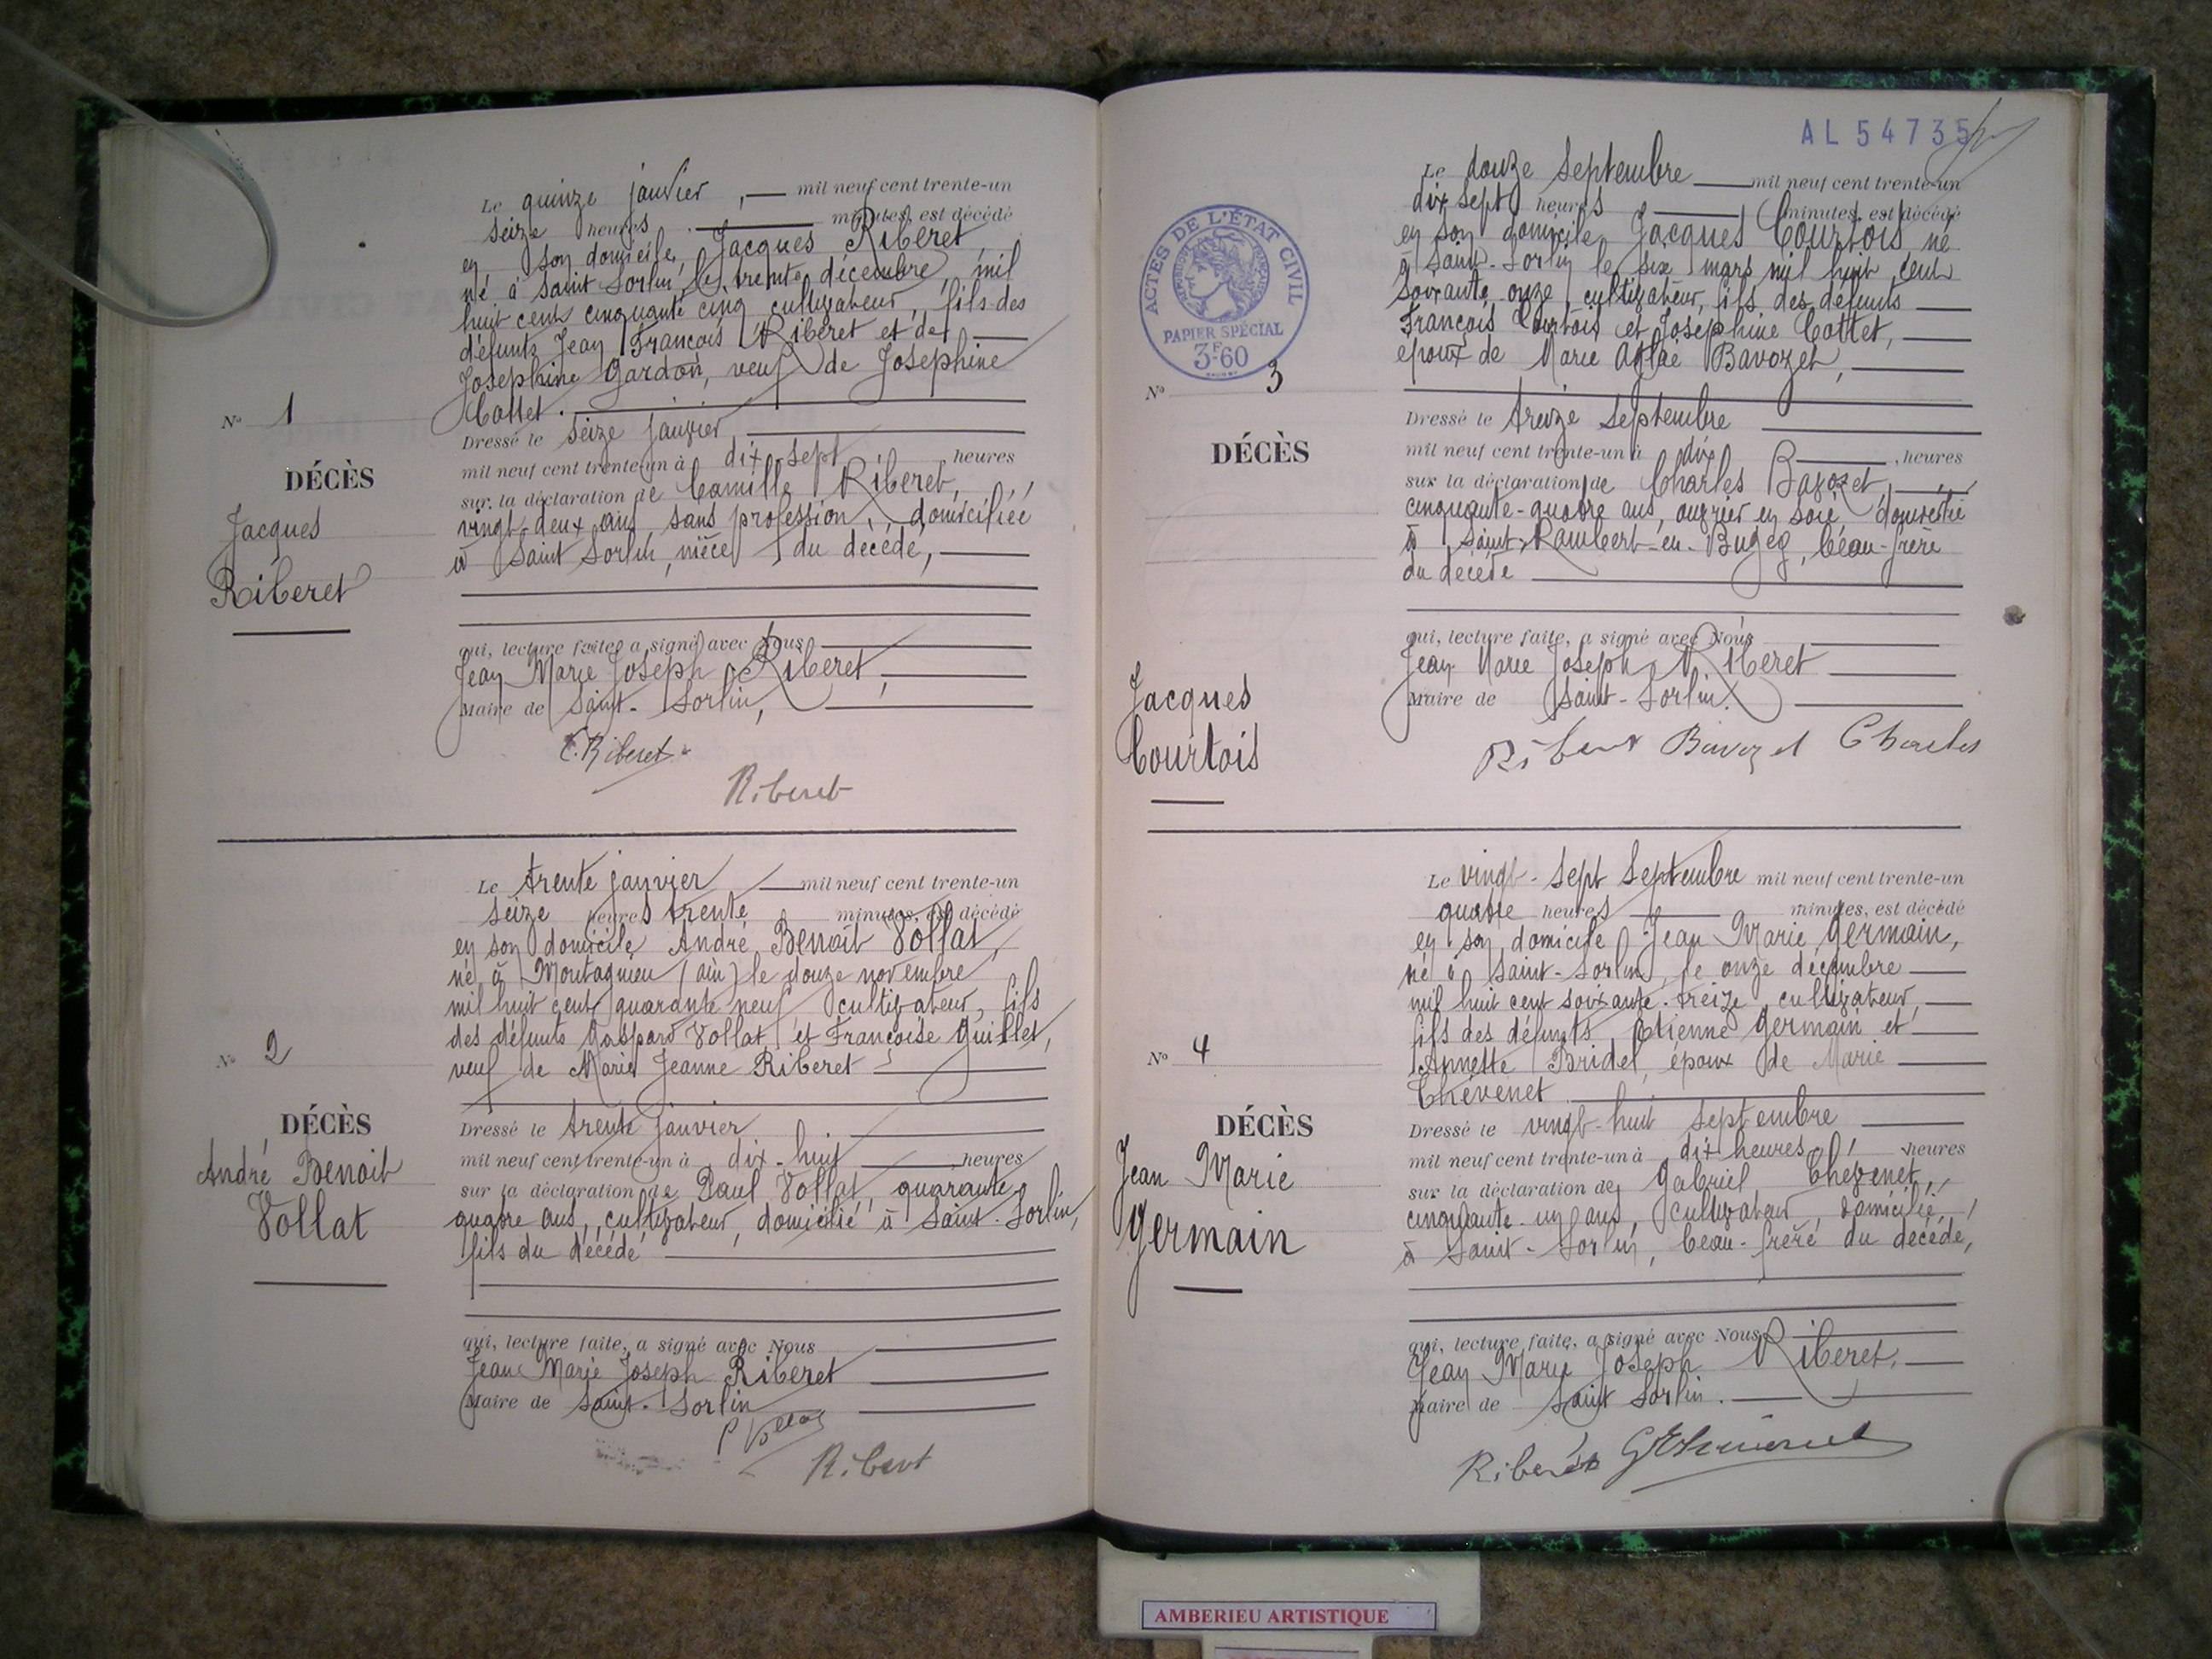 Le quinze janvier, mil neuf cent trente-un
seize heures minutes, est décédé
en son domicile, Jacques Riberet,
né à Saint Sorlin, le trente décembre, mil
huit cent cinquante cinq, cultivateur, fils des
défunts Jean François Riberet et de
Josephine Gardon, veuf de Josephine
Cottet.
N° 1
DÉCÈS
Jacques
Riberet
Dressé le seize janvier
mil neuf cent trente-un à dix-sept heures
sur la déclaration de Camille Riberet,
vingt-deux ans, sans profession, domiciliée
à Saint Sorlin, nièce du décédé,
qui, lecture faite, a signé avec Nous
Jean Marie Joseph Riberet,
Maire de Saint-Sorlin,
C. Riberet
Riberet
Le trente janvier mil neuf cent trente-un
seize heures trente minutes, est décédé
en son domicile André Benoit Vollat,
né à Montagnieu (ain) le douze novembre
mil huit cent quarante neuf cultivateur, fils
des défunts Gaspard Vollat, et Françoise Guillet,
veuf de Marie Jeanne Riberet
N° 2
DÉCÈS
André Benoit
Vollat
Dressé le trente janvier
mil neuf cent trente-un à dix-huit heures
sur la déclaration de Paul Vollat, quarante
quatre ans, cultivateur, domicilié à Saint-Sorlin,
fils du décédé
qui, lecture faite, a signé avec Nous
Jean Marie Joseph Riberet
Maire de Saint-Sorlin
P Vollat
Riberet
AL 54735
ACTES DE L'ÉTAT CIVIL
PAPIER SPÉCIAL
3F60
Le douze Septembre mil neuf cent trente-un
dix sept heures minutes, est décédé
en son domicile, Jacques Courtois, né
à Saint-Sorlin le six mars mil huit cent
soixante onze, cultivateur, fils des défunts
François Courtois et Joséphine Cottet,
époux de Marie Aglaé Bavozet,
N° 3
DÉCÈS
Jacques
Courtois
Dressé le treize Septembre
mil neuf cent trente-un à dix heures
sur la déclaration de Charles Bavozet,
cinquante-quatre ans, ouvrier en soie, domicilié
à Saint-Rambert-en-Bugey, beau-frère
du décédé
qui, lecture faite, a signé avec Nous
Jean Marie Joseph Riberet
Maire de Saint-Sorlin.
Riberet Bavozet Charles
Le vingt-sept Septembre mil neuf cent trente-un
quatre heures minutes, est décédé
en son domicile Jean Marie Germain,
né à Saint-Sorlin, le onze décembre
mil huit cent soixante-treize, cultivateur,
fils des défunts Etienne Germain et
Annette Bridel, époux de Marie
Chevenet
N° 4
DÉCÈS
Jean Marie
Germain
Dressé le vingt-huit septembre
mil neuf cent trente-un à dix heures heures
sur la déclaration de Gabriel Chevenet,
cinquante-un ans, cultivateur, domicilié,
à Saint-Sorlin, beau-frère du décédé,
qui, lecture faite, a signé avec Nous
Jean Marie Joseph Riberet,
Maire de Saint Sorlin.
Riberet
AMBERIEU ARTISTIQUE